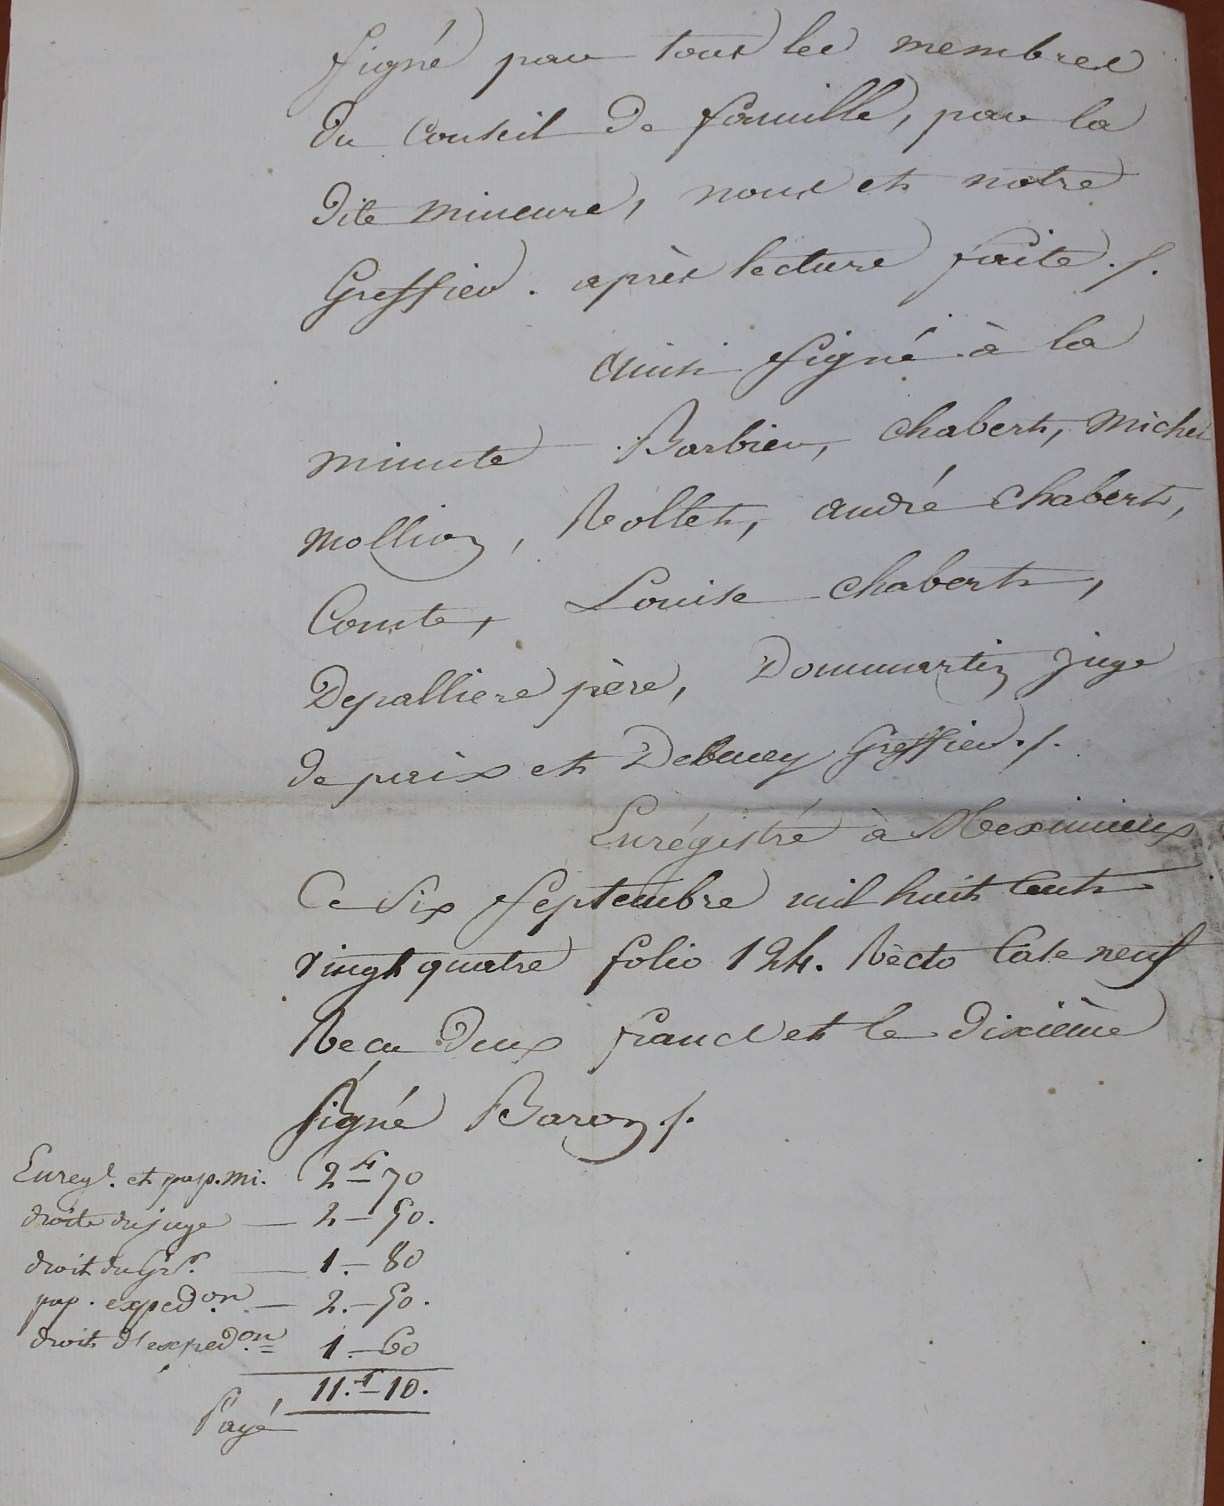 signé par tous les membres
du conseil de famille, par la
dite mineure, nous et notre
Greffier . après lecture faite ./.
ainsi signé à la
minute Barbier, chabert, Michel
Mollion, Rollet, andré chabert,
Comte, Louise chabert,
Depalliere père, Dommartin juge
de paix et Debeney Greffier ./.
Enrégistré à Meximieux
Ce six septembre mil huit cent
vingt quatre folio 124. Recto Case neuf
Recu deux francs et le dixième
signé Baron ./.
Enregt. et pap. mi. 2 f 70
droits du juge — 2 — 50.
droit du Grr. — 1. — 80
pap. expedon. — 2. — 50.
droit d'expedon. = 1. — 60
11. f 10.
Payé